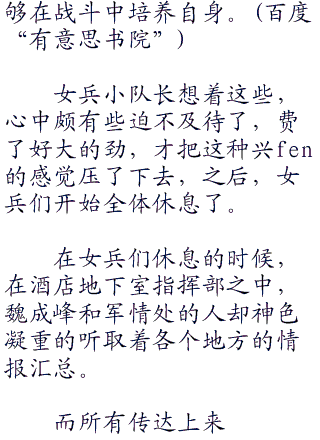 够在战斗中培养自身。(百度
“有意思书院”)
女兵小队长想着这些，
心中颇有些迫不及待了，费
了好大的劲，才把这种兴fen
的感觉压了下去，之后，女
兵们开始全体休息了。
在女兵们休息的时候，
在酒店地下室指挥部之中，
魏成峰和军情处的人却神色
凝重的听取着各个地方的情
报汇总。
而所有传达上来